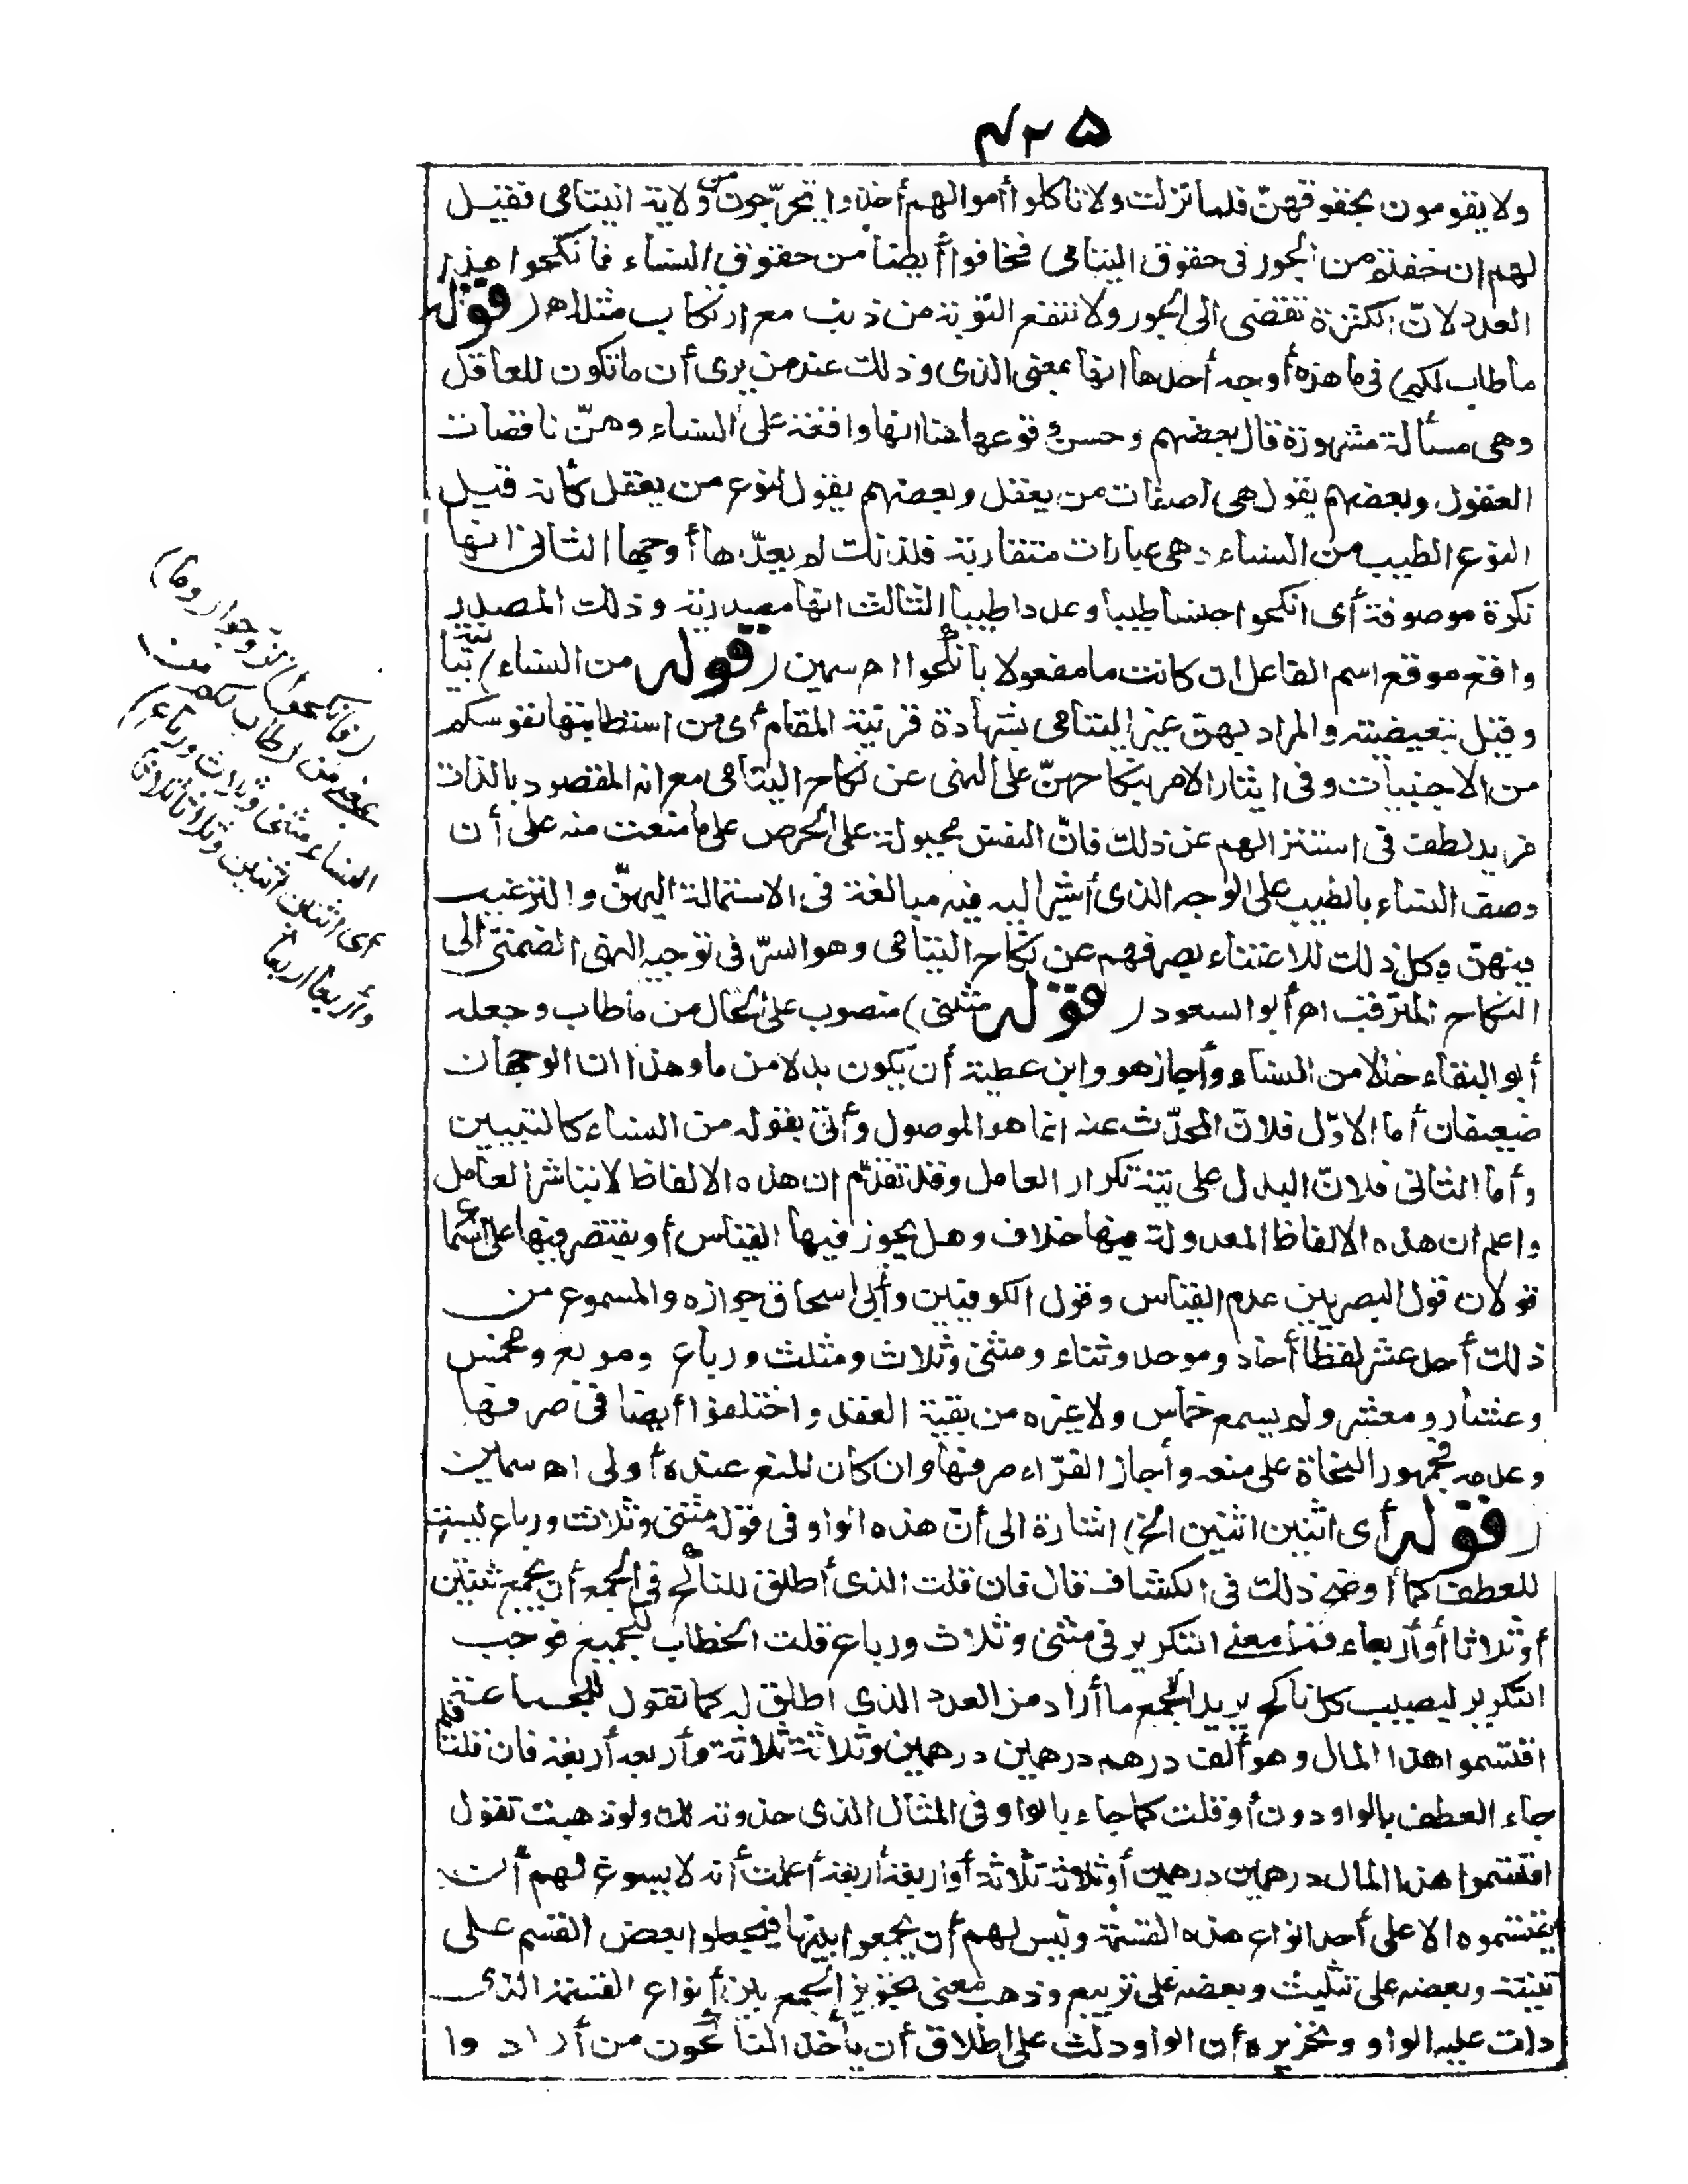 ٤٢٥
ولا يقومون بحقوقهنّ فلما نزلت ولا تأكلوا أموالهم أخذوا يتحرّجون من ولاية اليتامى فقيل
لهم ان خفتم من الجور فى حقوق اليتامى فخافوا أيضا من حقوق النساء فانكحوا هذا
العدد لانّ الكثرة تقضى الى الجور ولا تنفع التوبة من ذنب مع ارتكاب مثله اهـ (قوله
ما طاب لكم) فى ما هذه أوجه أحدها انها بمعنى الذى وذلك عند من يرى أن ما تكون للعاقل
وهى مسألة مشهورة قال بعضهم وحسن وقوعها هنا انها واقعة على النساء وهنّ ناقصات
العقول وبعضهم يقول هى لصفات من يعقل وبعضهم يقول لنوع من يعقل كأنه قيل
النوع الطيب من النساء وهى عبارات متقاربة فلذلك لم يعدّها أوجها الثانى انها
نكرة موصوفة أى انكحوا جنسا طيبا وعددا طيبا الثالث انها مصدرية وذلك المصدر
واقع موقع اسم الفاعل ان كانت ما مفعولا بانكحوا اهـ سمين (قوله من النساء) بيانية
وقيل تبعيضية والمراد بهنّ غير اليتامى بشهادة قرينة المقام أى من استطابتها نفوسكم
من الاجنبيات وفى ايثار الامر بنكاحهنّ على النهى عن نكاح اليتامى مع انه المقصود بالذات
مزيد لطف فى استنزالهم عن ذلك فانّ النفس مجبولة على الحرص على ما منعت منه على أن
وصف النساء بالطيب على الوجه الذى أشير اليه فيه مبالغة فى الاستمالة اليهنّ والترغيب
فيهنّ وكل ذلك للاعتناء بصرفهم عن نكاح اليتامى وهو السرّ فى توجيه النهى الضمنىّ الى
النكاح المترقب اهـ أبو السعود (قوله مثنى) منصوب على الحال من ما طاب وجعله
أبو البقاء حالا من النساء وأجاز هو وابن عطية أن يكون بدلا من ما وهذا ان الوجهان
ضعيفان أما الاوّل فلانّ المحدّث عنه انما هو الموصول وأتى بقوله من النساء كالتبيين
وأما الثانى فلانّ البدل على نية تكرار العامل وقد تقدّم ان هذه الالفاظ لا تباشر العامل
واعلم ان هذه الالفاظ المعدولة فيها خلاف وهل يجوز فيها القياس أو يقتصر فيها على السماع
قولان قول البصريين عدم القياس وقول الكوفيين وأبى اسحاق جوازه والمسموع من
ذلك أحد عشر لفظا أحاد وموحد وثناء ومثنى وثلاث ومثلث ورباع ومربع ومخمس
وعشار ومعشر ولم يسمع خماس ولا غيره من بقية العقد واختلفوا أيضا فى صرفها
وعدمه فجمهور النحاة على منعه وأجاز الفرّاء صرفها وان كان المنع عنده أولى اهـ سمين
(قوله أى اثنين اثنين الخ) اشارة الى أنّ هذه الواو فى قوله مثنى وثلاث ورباع ليست
للعطف كما أوضح ذلك فى الكشاف قال فان قلت الذى أطلق للناكح فى الجمع أن يجمع ثنتين
أو ثلاثا أو أربعاء فما معنى التكرير فى مثنى وثلاث ورباع قلت الخطاب للجميع فوجب
التكرير ليصيب كل ناكح يريد الجمع ما أراد من العدد الذى اطلق له كما تقول للجماعة
اقتسموا هذا المال وهو ألف درهم درهمين درهمين وثلاثة ثلاثة وأربعة أربعة فان قلت فلم
جاء العطف بالواو دون أو قلت كما جاء بالواو فى المثال الذى حذوته لك ولو ذهبت تقول
اقتسموا هذا المال درهمين درهمين أو ثلاثة ثلاثة أو اربعة أربعة أعلمت أنه لا يسوغ لهم أن
يقتسموه الا على أحد انواع هذه القسمة وليس لهم أن يجمعوا بينها فيجعلوا بعض القسم على
تثنية وبعضه على تثليث وبعضه على تربيع وذهب معنى تجويز الجمع بين أنواع القسمة الذى
دلت عليه الواو وتحريره أن الواو دلت على اطلاق أن يأخذ الناكحون من أرادوا
(فانكحوا) تزوّجوا (ما)
بمعنى من (طاب لكم من
النساء مثنى وثلاث ورباع)
أى اثنين اثنين وثلاثا ثلاثا
وأربعا أربعا